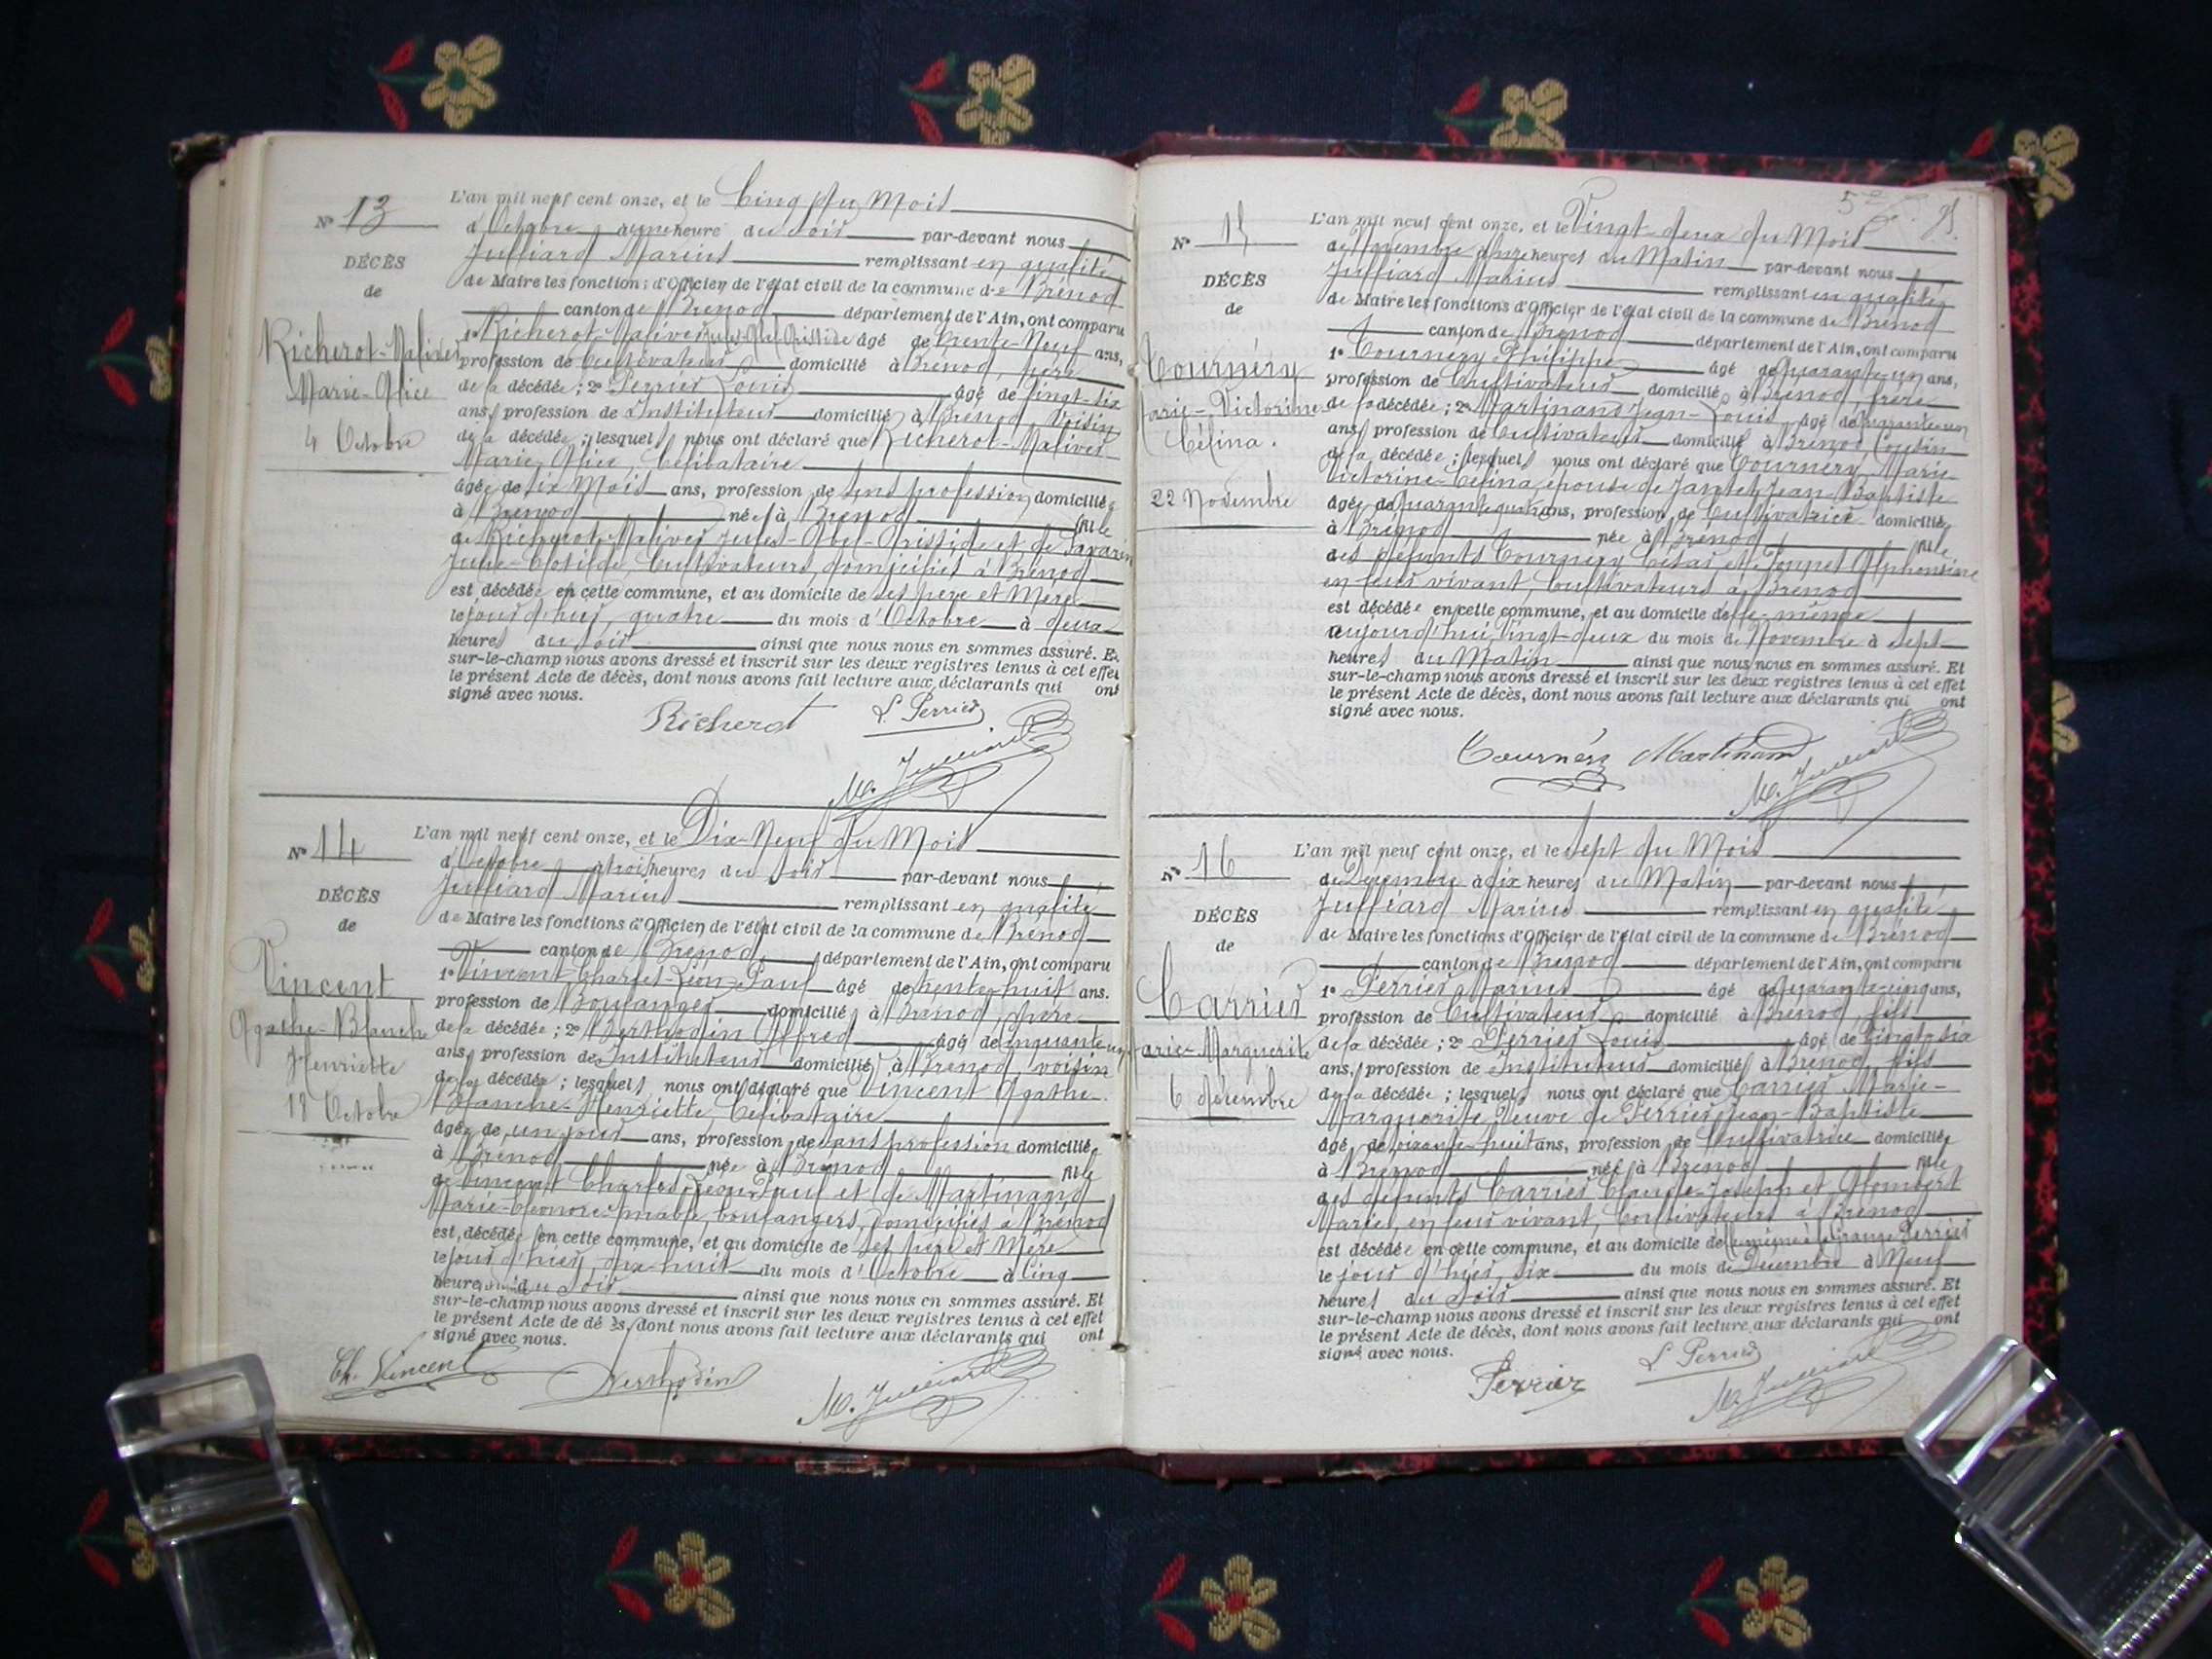 N° 13
DÉCÈS
de
Richerot-Malivet
Marie-Alice
4 Octobre
L'an mil neuf cent onze, et le Cinq du Mois
d'Octobre à une heure du soir par-devant nous
Julliard Marius remplissant en qualité
de Maire les fonctions d'Officier de l'état civil de la commune de Brénod
canton de Brénod département de l'Ain, ont comparu
1° Richerot-Malivet âgé de trente-Neuf ans,
profession de Cultivateur domicilié à Brénod, père
de la décédée; 2° Perrier Louis âgé de vingt-six
ans, profession de Instituteur domicilié à Brénod Voisin
de la décédée; lesquels nous ont déclaré que Richerot-Malivet
Marie Alice, Célibataire
âgée de six Mois ans, profession de sans profession domiciliée
à Brénod née à Brénod fille
de Richerot-Malivet Jules-Abel-Aristide et de Savarin
Julie-Clotilde, Cultivateurs, domiciliés à Brénod
est décédée en cette commune, et au domicile de ses père et Mère
le jour d'hier, quatre du mois d'Octobre à deux
heures du soir ainsi que nous nous en sommes assuré. Et
sur-le-champ nous avons dressé et inscrit sur les deux registres tenus à cet effet
le présent Acte de décès, dont nous avons fait lecture aux déclarants qui ont
signé avec nous.
Richerot L. Perrier
M. Julliard
N° 14
DÉCÈS
de
Vincent
Agathe-Blanche
Henriette
18 Octobre
L'an mil neuf cent onze, et le Dix-Neuf du Mois
d'Octobre à trois heures du soir par-devant nous
Julliard Marius remplissant en qualité
de Maire les fonctions d'Officier de l'état civil de la commune de Brénod
canton de Brénod département de l'Ain, ont comparu
1° Vincent Charles-Léon-Paul âgé de trente-huit ans.
profession de Boulanger domicilié à Brénod, père
de la décédée; 2° Berthodin Alfred âgé de cinquante un
ans, profession de Instituteur domicilié à Brénod, voisin
de la décédée; lesquels nous ont déclaré que Vincent Agathe
Blanche-Henriette Célibataire
âgée de un jour ans, profession de sans profession domiciliée
à Brénod née à Brénod fille
de Vincent Charles Léon Paul et de Martinand
Marie-Eléonore boulangers, domiciliés à Brénod
est décédée en cette commune, et au domicile de ses père et Mère
le jour d'hier, dix-huit du mois d'Octobre à cinq
heures du soir ainsi que nous nous en sommes assuré. Et
sur-le-champ nous avons dressé et inscrit sur les deux registres tenus à cet effet
le présent Acte de décès, dont nous avons fait lecture aux déclarants qui ont
signé avec nous.
Ch. Vincent Berthodin M. Julliard
N° 15
DÉCÈS
de
Tournéry
arie-Victorine
Célina.
22 Novembre
L'an mil neuf cent onze, et le Vingt-deux du Mois
de Novembre à onze heures du Matin par-devant nous
Julliard Marius remplissant en qualité
de Maire les fonctions d'Officier de l'état civil de la commune de Brénod
canton de Brénod département de l'Ain, ont comparu
1° Tournéry Philippe âgé de quarante-un ans,
profession de Cultivateur domicilié à Brénod, frère
de la décédée; 2° Martinand Jean-Louis âgé de quarante un
ans, profession de Cultivateur domicilié à Brénod Cousin
de la décédée; lesquels nous ont déclaré que Tournéry Marie-
Victorine-Célina, épouse de Jantet Jean-Baptiste
âgée de quarante ans, profession de Cultivatrice domiciliée
à Brénod née à Brénod fille
des défunts Tournéry César et Alphonsine
en leur vivant, Cultivateurs à Brénod
est décédée en cette commune, et au domicile d'elle-même
aujourd'hui, Vingt-deux du mois de Novembre à sept
heures du Matin ainsi que nous nous en sommes assuré. Et
sur-le-champ nous avons dressé et inscrit sur les deux registres tenus à cet effet
le présent Acte de décès, dont nous avons fait lecture aux déclarants qui ont
signé avec nous.
Tournéry Martinand
M. Julliard
N° 16
DÉCÈS
de
Carrier
arie-Marguerite
6 décembre
L'an mil neuf cent onze, et le sept du Mois
de Décembre à dix heures du Matin par-devant nous
Julliard Marius remplissant en qualité
de Maire les fonctions d'Officier de l'état civil de la commune de Brénod
canton de Brénod département de l'Ain, ont comparu
1° Perrier Marius âgé de quarante-cinq ans,
profession de Cultivateur domicilié à Brénod, fils
de la décédée; 2° Perrier Louis âgé de Vingt-six
ans, profession de Instituteur domicilié à Brénod fils
de la décédée; lesquels nous ont déclaré que Carrier Marie-
Marguerite Veuve de Perrier Jean-Baptiste
âgé de soixante-huit ans, profession de Cultivatrice domiciliée
à Brénod née à Brénod fille
des défunts Carrier Claude-Joseph et
Marie, en leur vivant, Cultivateurs à Brénod
est décédée en cette commune, et au domicile de Perrier
le jour d'hier, six du mois de Décembre à Neuf
heures du Soir ainsi que nous nous en sommes assuré. Et
sur-le-champ nous avons dressé et inscrit sur les deux registres tenus à cet effet
le présent Acte de décès, dont nous avons fait lecture aux déclarants qui ont
signé avec nous.
Perrier L. Perrier
M. Julliard